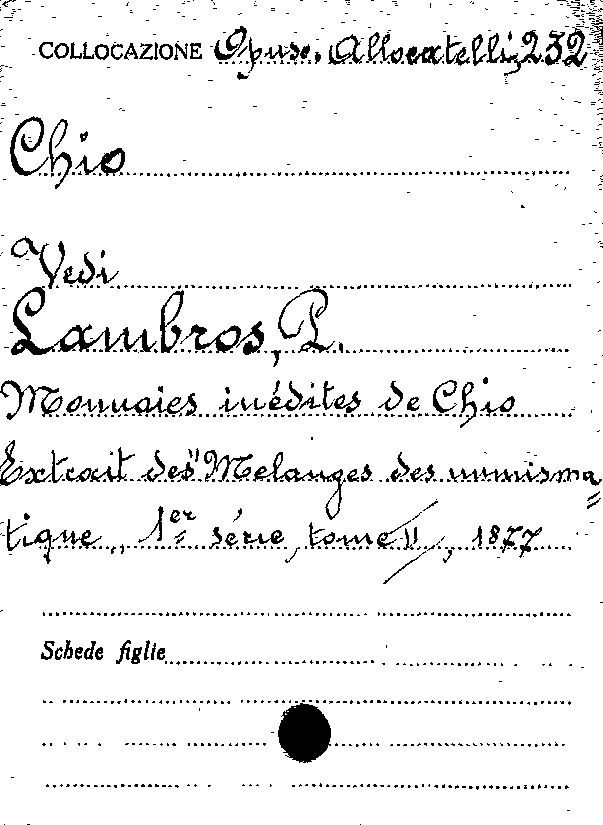 COLLOCAZIONE Opusc. Allocatelli, 232
Chio
Vedi
Lambros, P.
Monnaies inédites de Chio
Extrait des "Melanges des numisma=
tique„ 1er série, tome II, 1877
Schede figlie